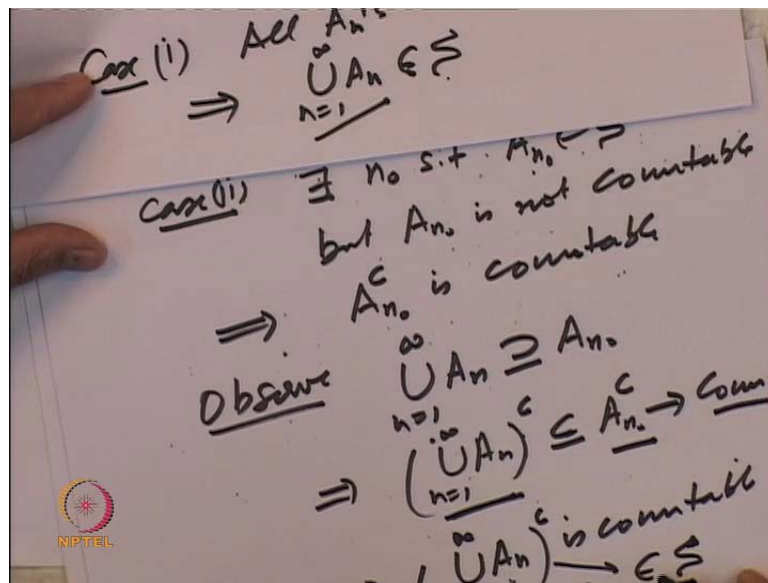 Case (i) All Aₙ's
⟹ ∞⋃n=1 Aₙ ∈ S
Case (i) ∃ n₀ s.t. Aₙ₀ ∈ S
but Aₙ₀ is not countable
⟹ Aₙ₀ᶜ is countable
Observe ∞⋃n=1 Aₙ ⊇ Aₙ₀
⟹ (∞⋃n=1 Aₙ)ᶜ ⊆ Aₙ₀ᶜ → Coun
∞⋃ Aₙ)ᶜ is countable
→ ∈ S
NPTEL